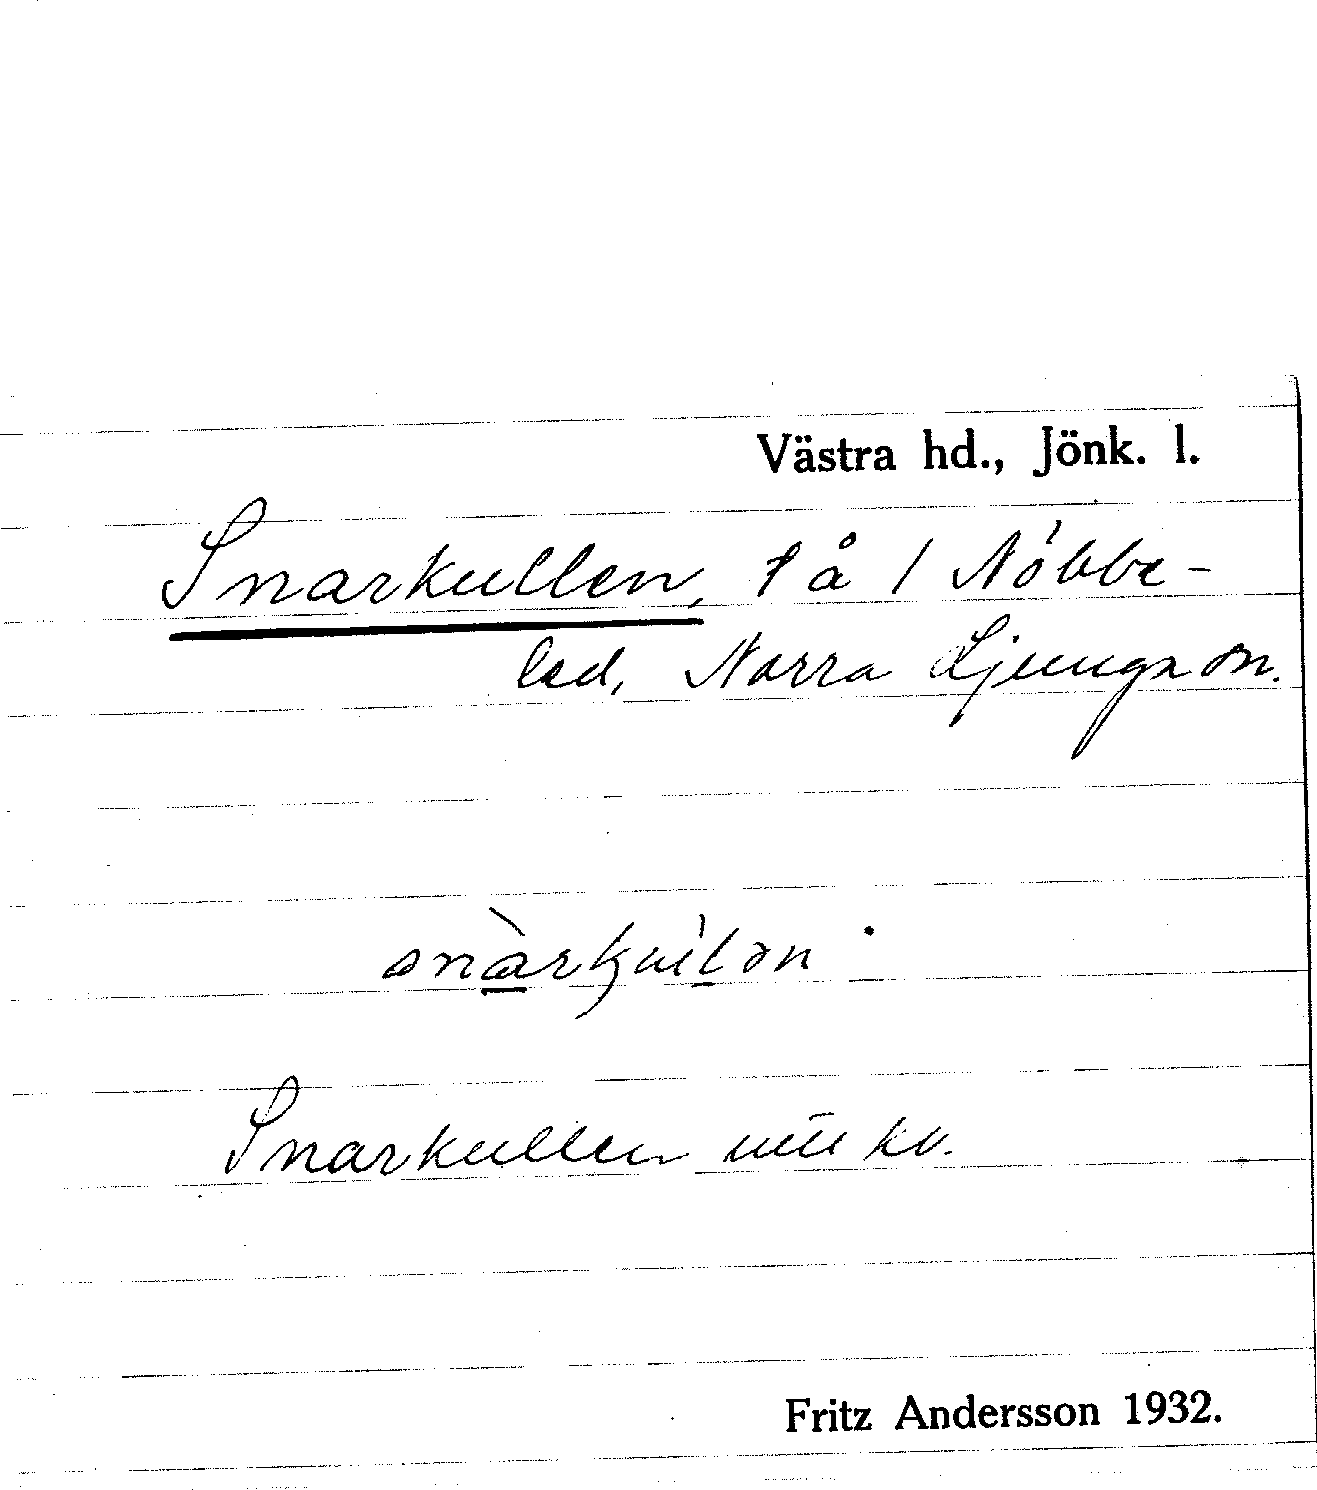 Västra hd., Jönk. l.
Snarkullen, t å / Nöbbe-
led, Norra Ljunga sn.
Snarkullen
Fritz Andersson 1932.